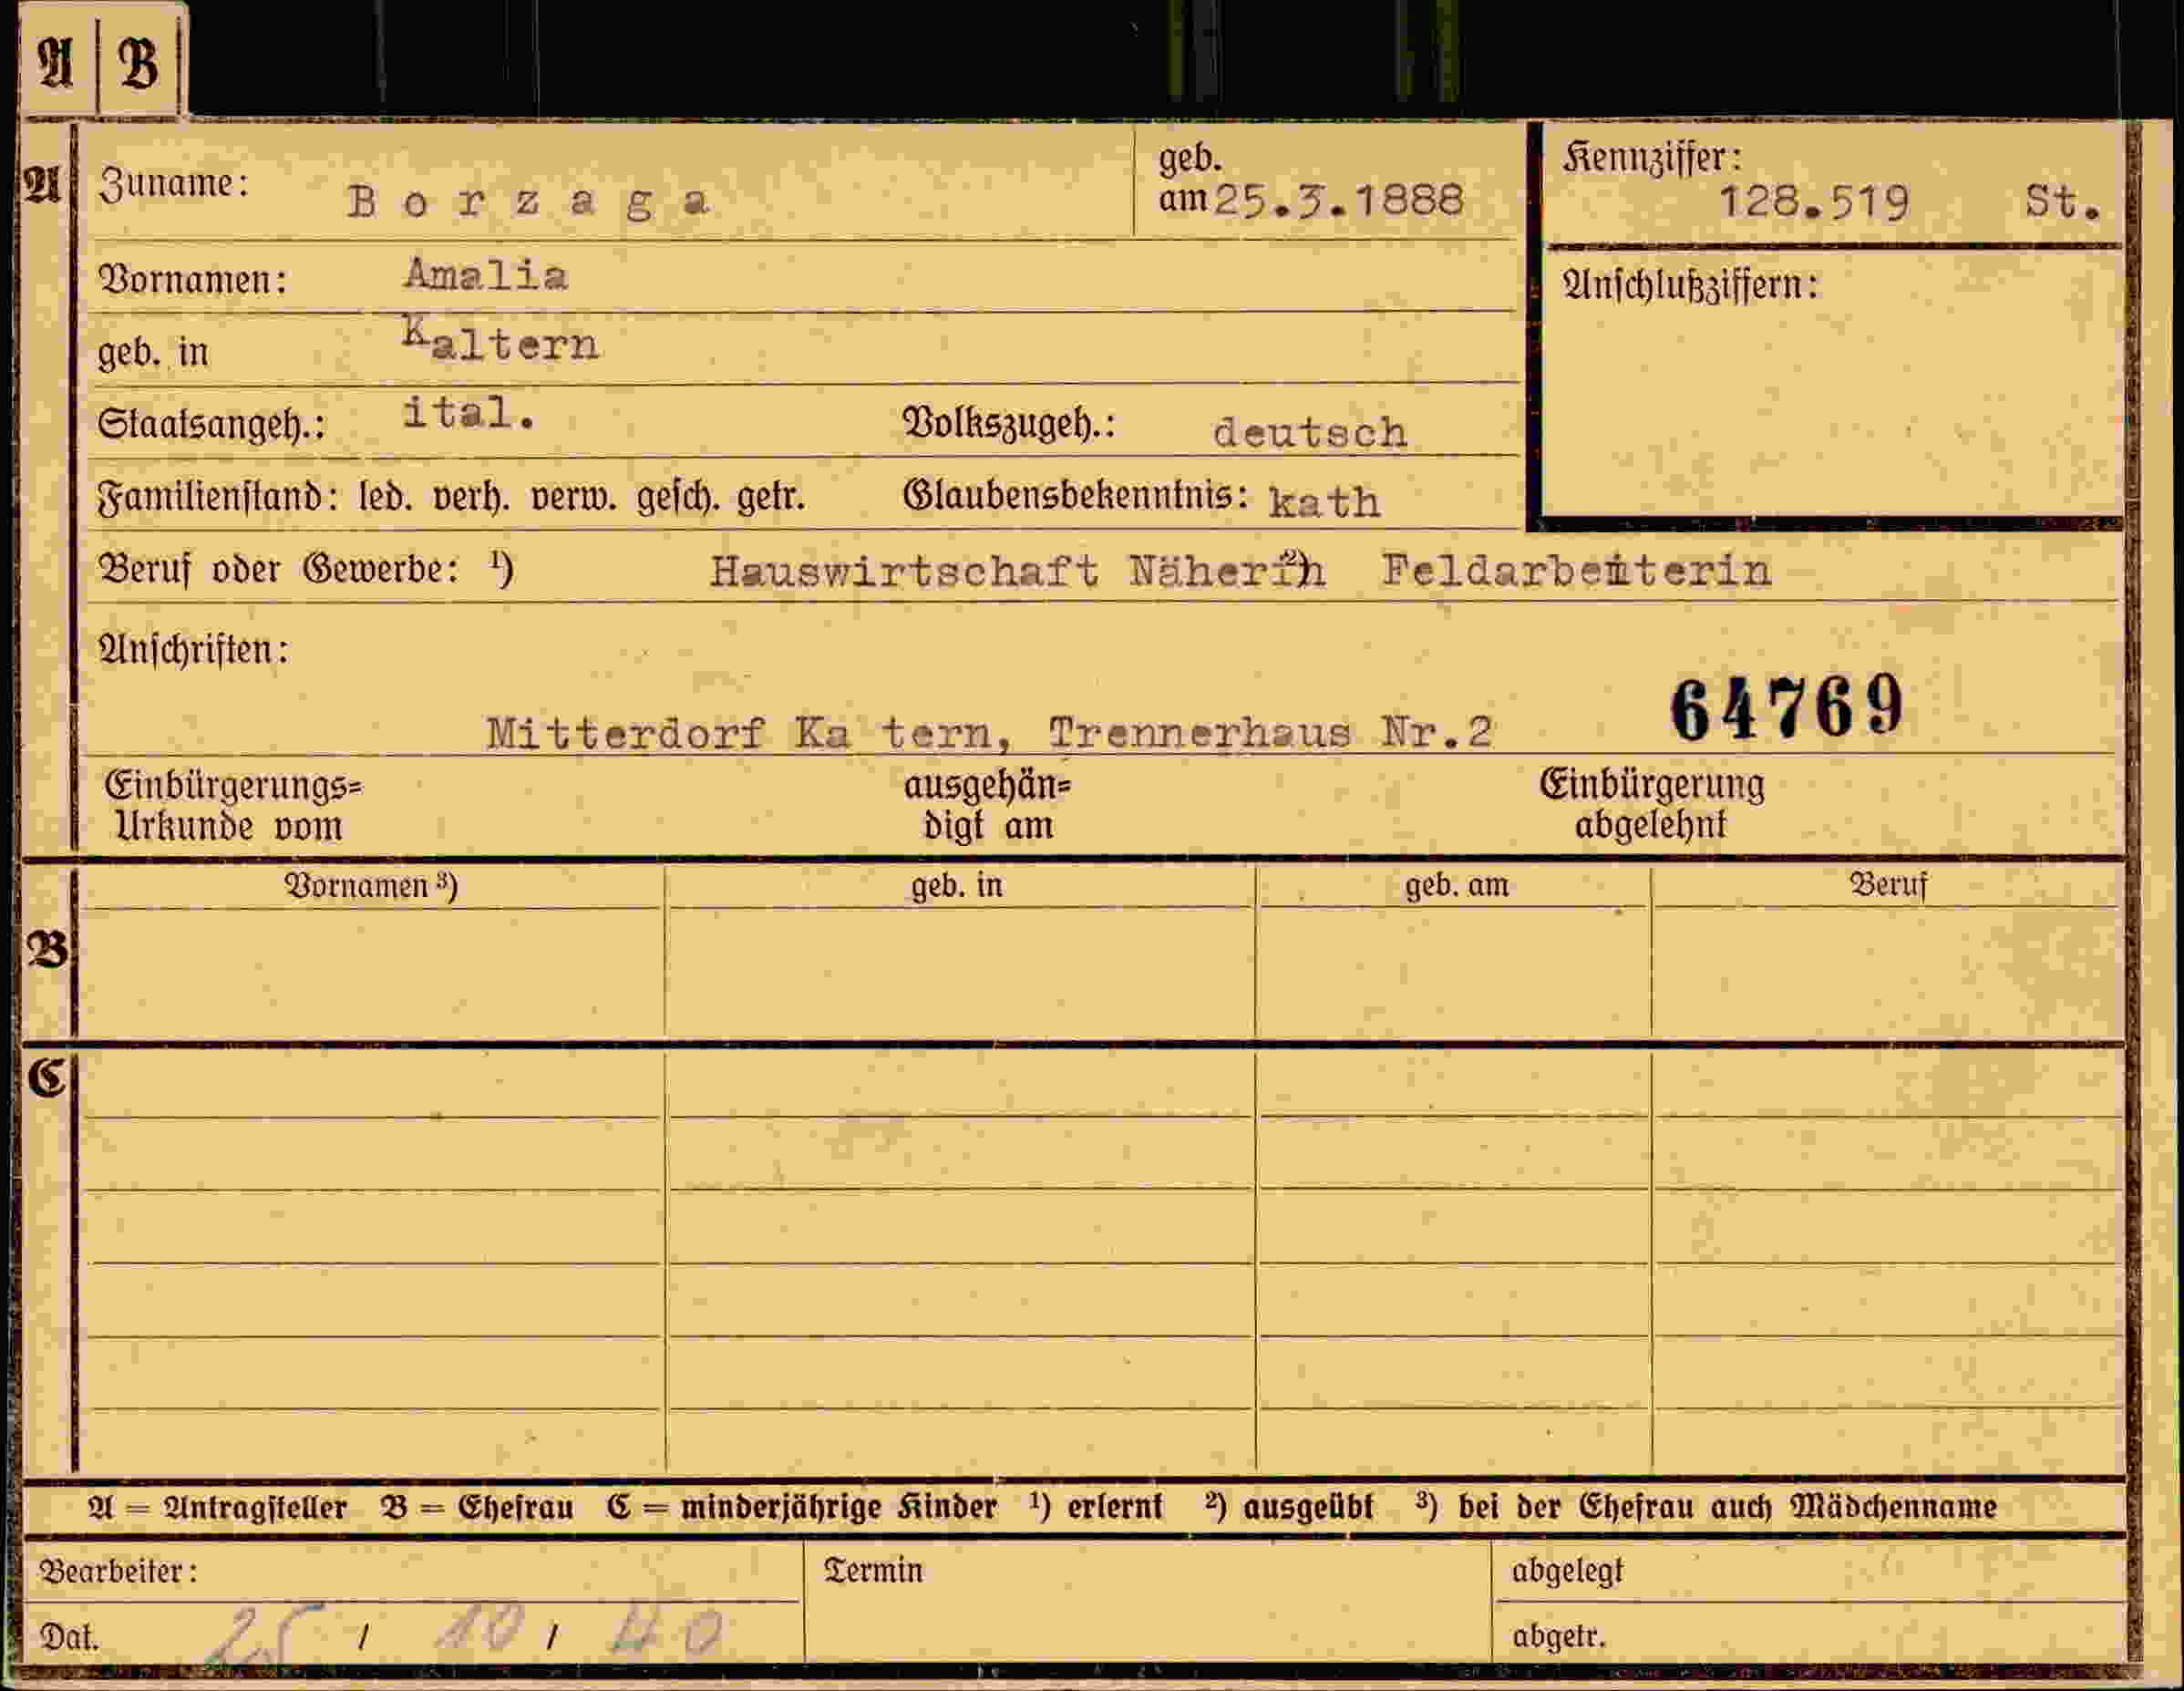 A B
A Zuname: Borzaga geb. am 25.3.1888 Kennziffer: 128.519 St.
Vornamen: Amalia Anschlußziffern:
geb. in Kaltern
Staatsangeh.: ital. Volkszugeh.: deutsch
Familienstand: led. verh. verw. gesch. getr. Glaubensbekenntnis: kath
Beruf oder Gewerbe: ¹) Hauswirtschaft Näherin ²) Feldarbeiterin
Anschriften:
64769
Mitterdorf Ka tern, Trennerhaus Nr.2
Einbürgerungs= ausgehän= Einbürgerung
Urkunde vom digt am abgelehnt
Vornamen ³) geb. in geb. am Beruf
B
C
A = Antragsteller B = Ehefrau C = minderjährige Kinder ¹) erlernt ²) ausgeübt ³) bei der Ehefrau auch Mädchenname
Bearbeiter: Termin abgelegt
Dat. 25 / 10 / 40 abgetr.